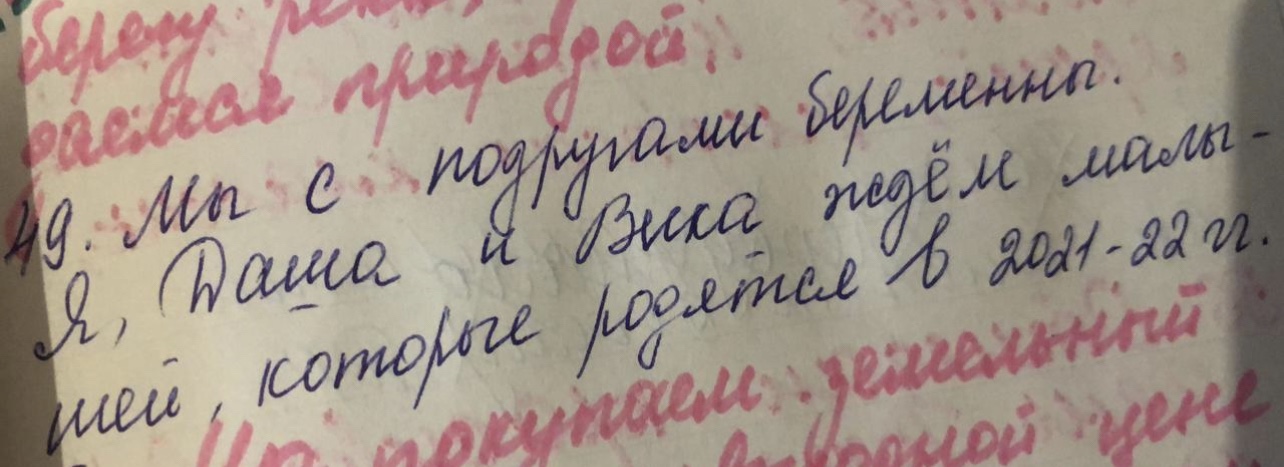 берегу
даемся природой.
49. Мы с подругами беременны.
Я, Даша и Вика ждём малы-
шей, которые родятся в 2021-22 гг.
покупаем земельный
цене